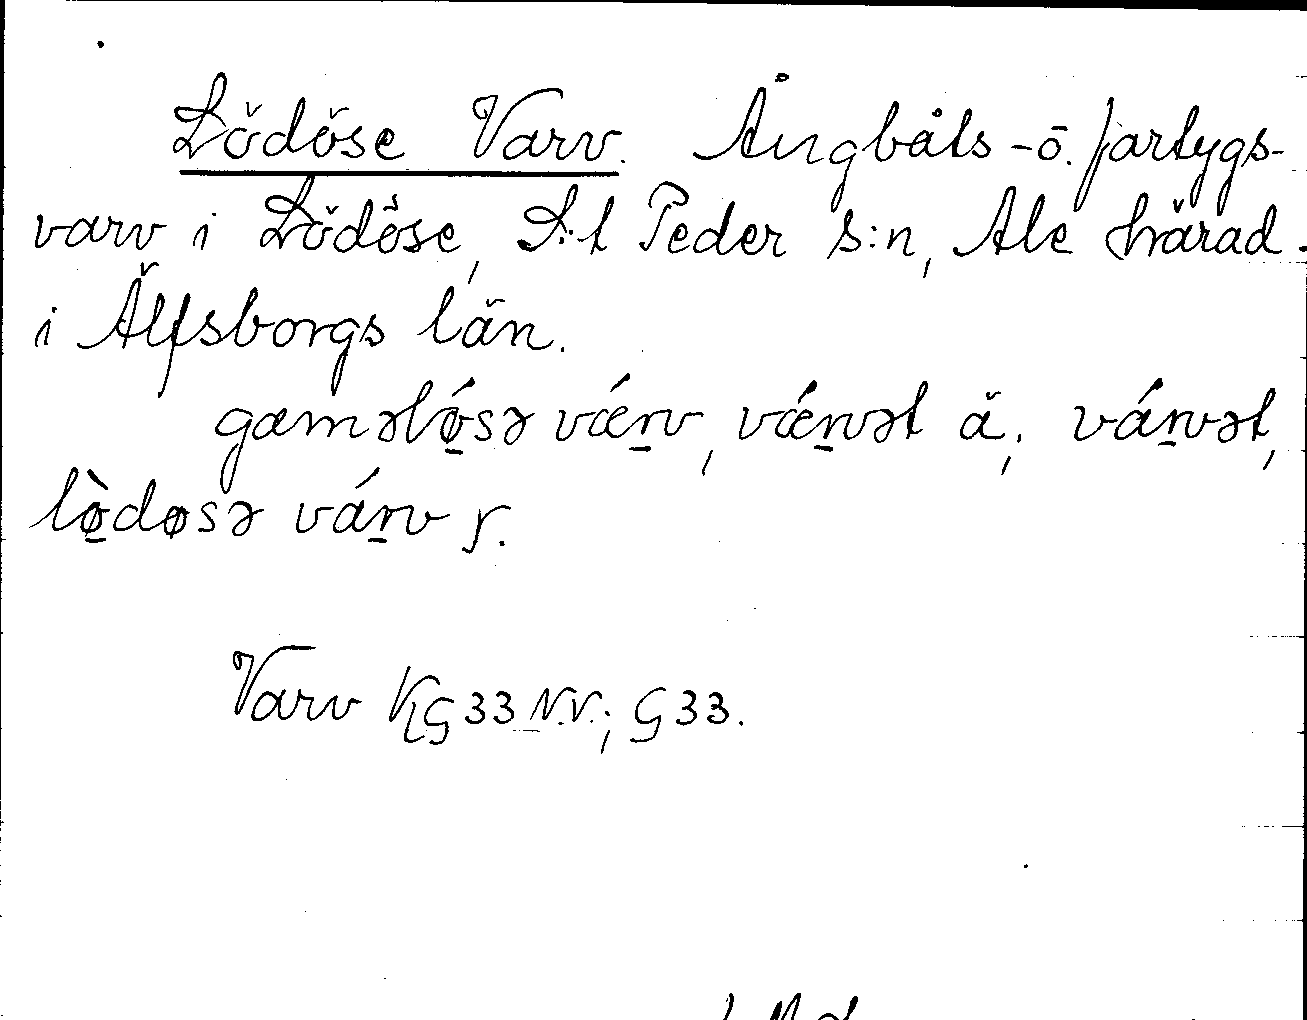 Lödöse Varv. Ångbåts- ō. fartygs-
varv i Lödöse, S:t Peder s:n, Ale härad
i Älfsborgs län.
gamǝlǿ̱sǝ vǽṉv, vǽṉvǝt ä.; váṉvǝt,
lø̱̀døsǝ váṉv y.
Varv KG33 N.V.; G33.